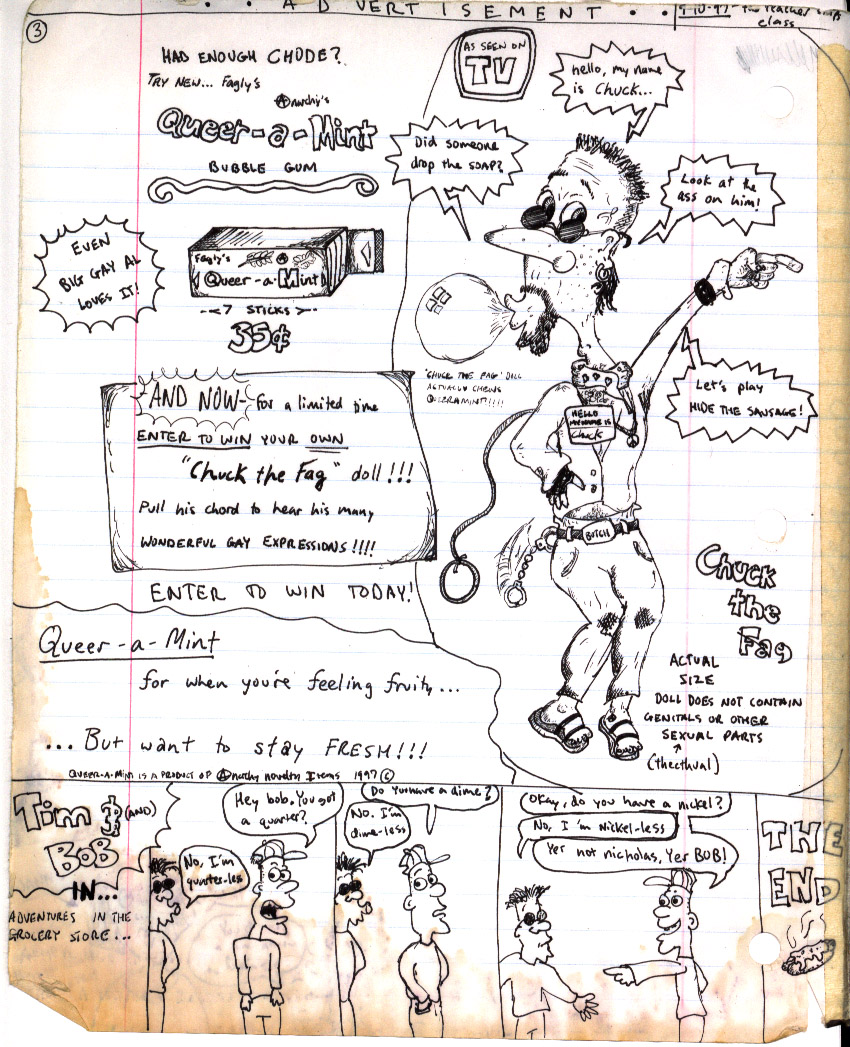 • • ADVERTISEMENT • •
9-10-97
class
3
HAD ENOUGH CHODE?
TRY NEW... Fagly's
Anarchy's
Queer-a-Mint
BUBBLE GUM
AS SEEN ON
TV
hello, my name
is Chuck...
Did someone
drop the SOAP?
Look at the
ass on him!
EVEN
BIG GAY AL
LOVES IT!
Fagly's
Queer-a-Mint
-<7 STICKS>-
35¢
"CHUCK THE FAG" DOLL
ACTUALLY CHEWS
QUEERAMINT!!!!!
Let's play
HIDE THE SAUSAGE!
-AND NOW- for a limited time
ENTER TO WIN YOUR OWN
"Chuck the Fag" doll!!!
Pull his chord to hear his many
WONDERFUL GAY EXPRESSIONS!!!!
HELLO
MY NAME IS
Chuck
BITCH
ENTER TO WIN TODAY!
Chuck
the
Fag
ACTUAL
SIZE
DOLL DOES NOT CONTAIN
GENITALS OR OTHER
SEXUAL PARTS
(thecthual)
Queer-a-Mint
for when you're feeling fruity...
...But want to stay FRESH!!!
QUEER-A-MINT IS A PRODUCT OF Anarchy novelty Items 1997 ©
Tim & (AND)
BOB
IN...
ADVENTURES IN THE
GROCERY STORE...
Hey bob. You got
a quarter?
No, I'm
quarter-less
Do you have a dime?
No. I'm
dime-less
Okay, do you have a nickel?
No, I'm Nickel-less
Yer not nicholas, Yer BOB!
THE
END